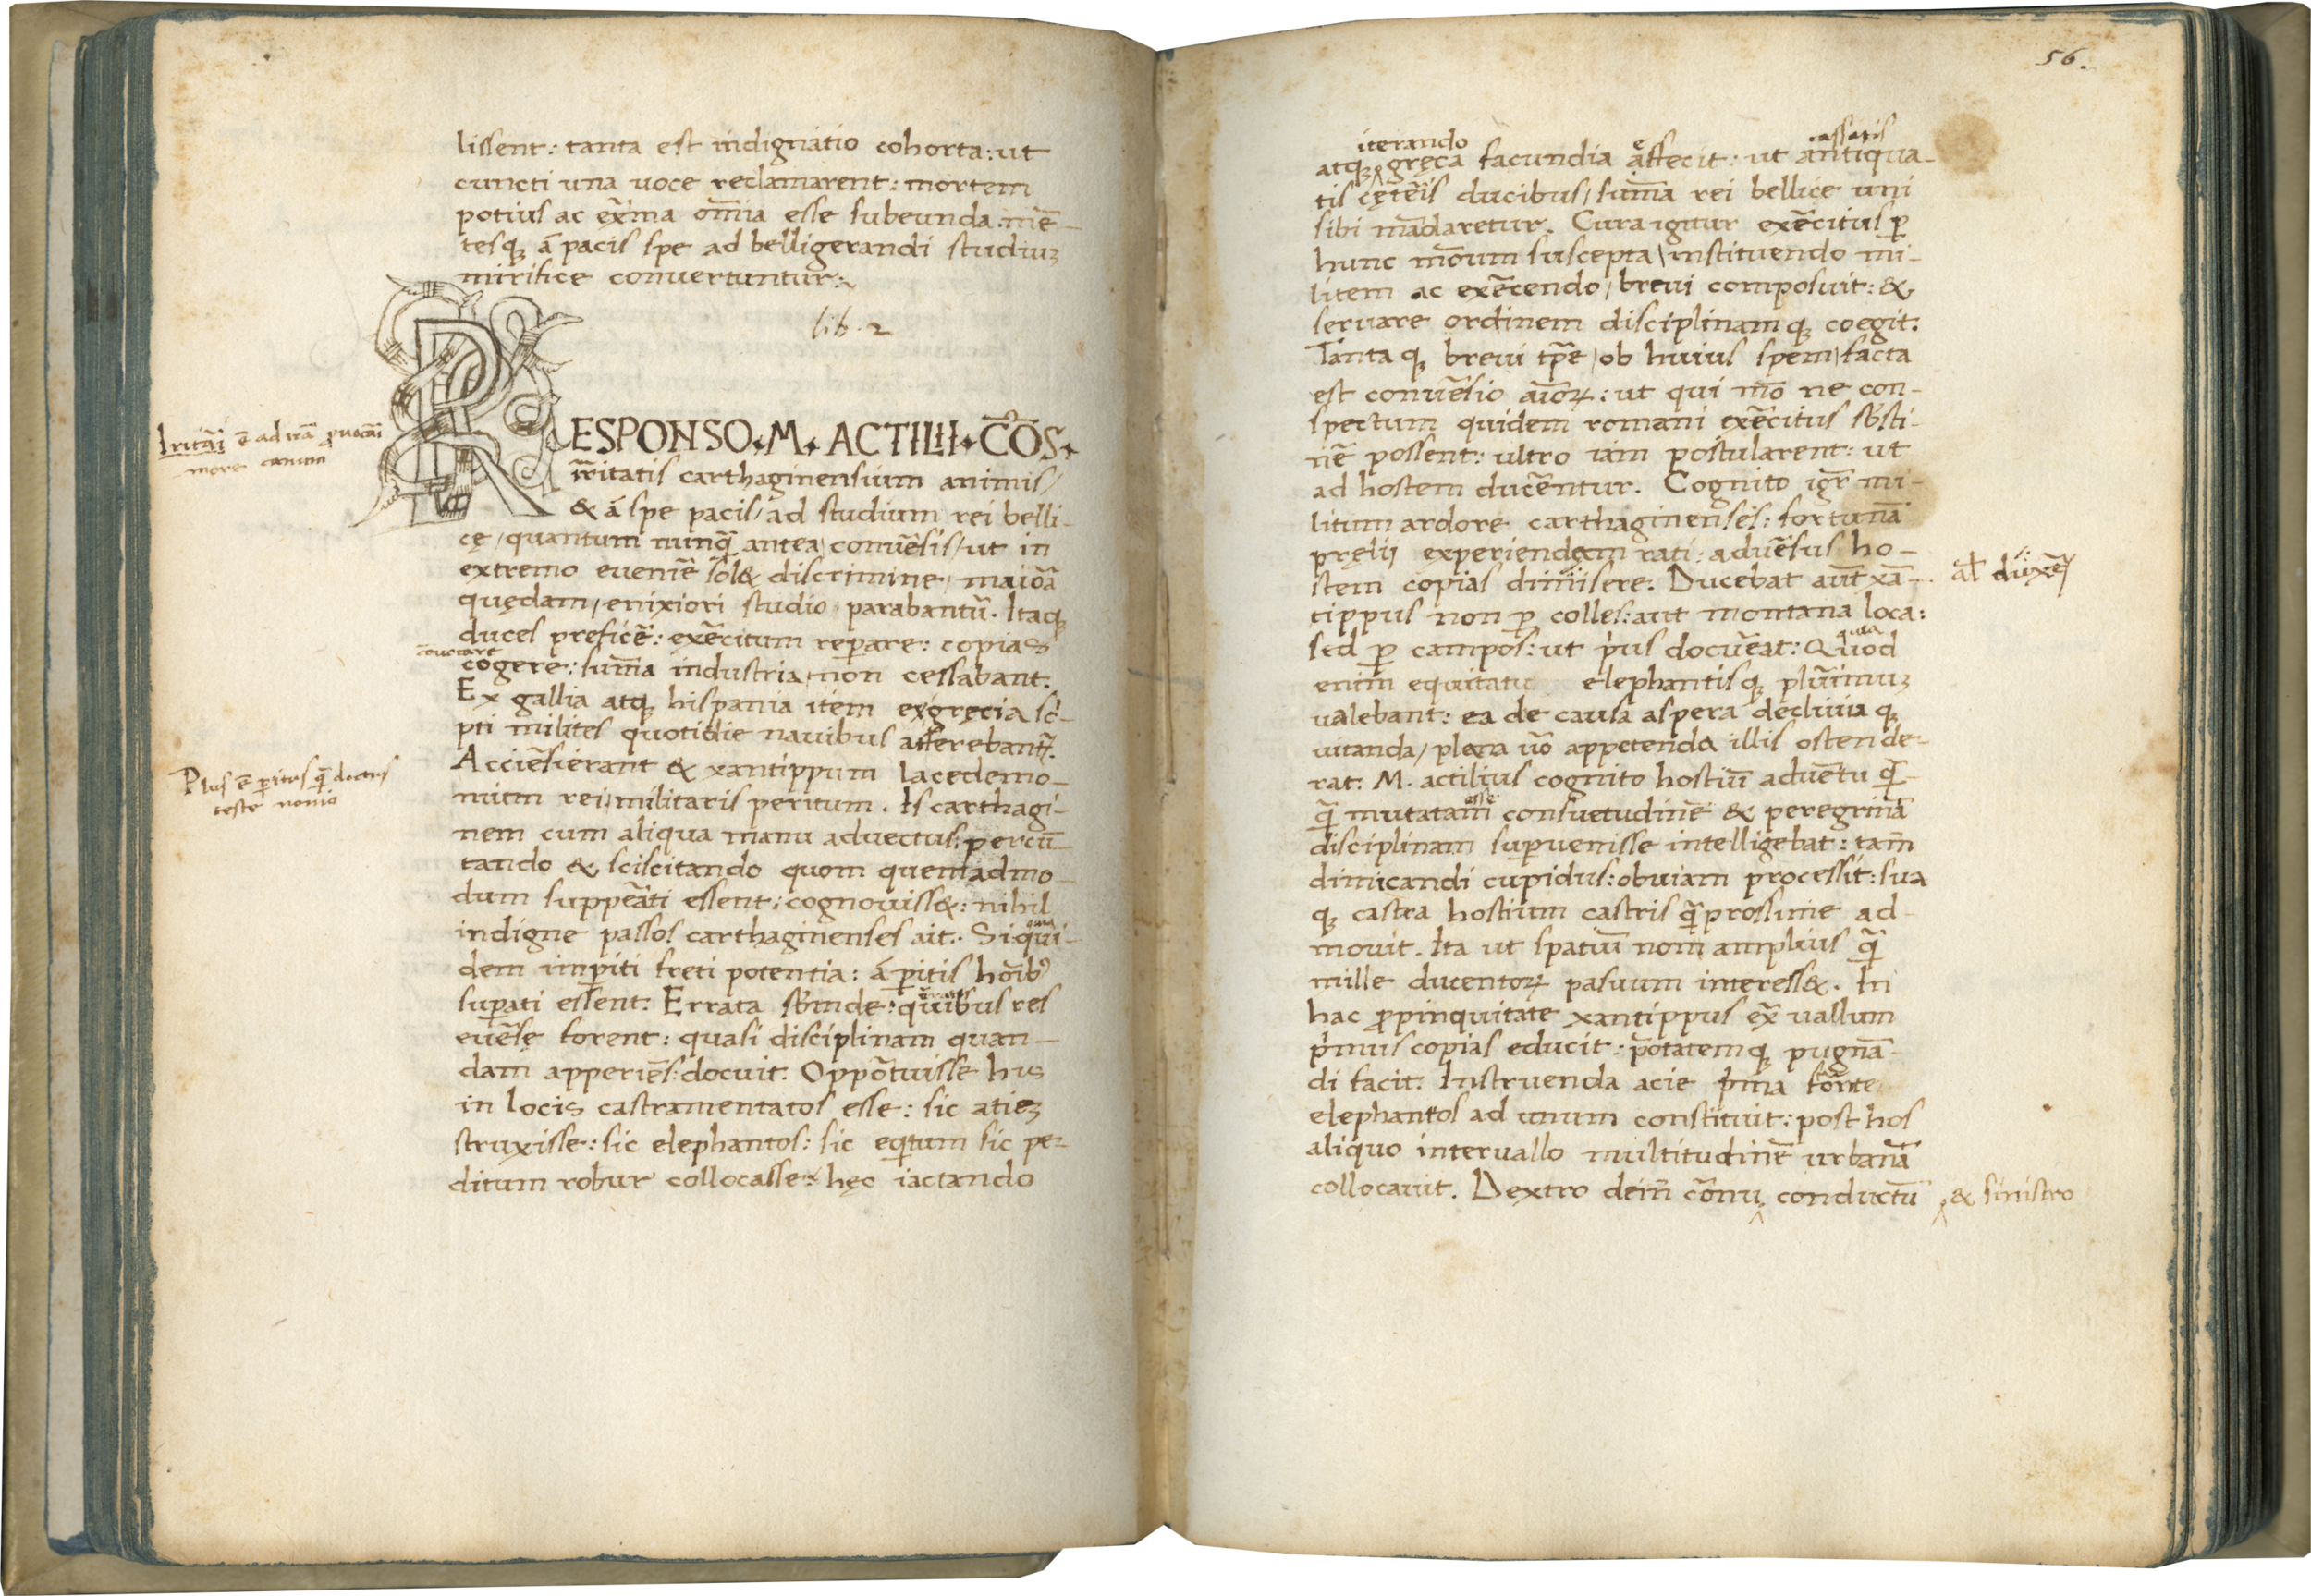 lissent: tanta est indignatio cohorta: ut
cuncti una uoce reclamarent: mortem
potius ac ext̄ma om̄ia esse subeunda. mē-
tesq; á pacis spe ad belligerandi studiuꝫ
mirifice conuertuntur:~
lib. 2
RESPONSO. M. ACTILII. CO̅S.
Irritatis carthaginensium animis/
& á spe pacis/ ad studium rei belli-
cę/ quantum nunq̄ antea conuēsis/ ut in
extremo eueniē sol& discrimine/ maiōa
quędam/ enixiori studio parabantū. Itaq;
duces preficē: exēcitum reꝑare: copias
conuocare
cogere: sum̄a industria non cessabant.
Ex gallia atq; hispania item exgręcia sc̄-
pti milites quotidie nauibus afferebant̄.
Acciēsierant & xantippum lacedemo-
nium rei militaris peritum. Is carthagi-
nem cum aliqua manu aduectus: percū-
tando & sciscitando quom quemadmo-
dum suppeāti essent: cognouiss&: nihil
indigne passos carthaginenses ait. Siqui-
dem imꝑiti freti potentia: á ꝑitis hōib9
suꝑati essent. Errata subinde: quibus res
euēse forent: quasi disciplinam quan-
dam apperiēs: docuit. Oppōtuisse his
in locis castramentatos esse: sic atieꝫ
struxisse: sic elephantos: sic eqtum sic pe-
ditum robur collocasse: hęc iactando
Irritāi ē ad irā ꝓuocāi
more canum
Plus ē ꝑitus q̄ doctus
teste nonio
56.
iterando
cassatis
atq; gręca facundia affecit: ut antiqua-
tis cętēis ducibus/ sum̄a rei bellice uni
sibi mādaretur. Cura igitur exēcitus ꝑ
hunc mōum suscepta/ instituendo mi-
litem ac exēcendo/ breui composuit: &
seruare ordinem disciplinamq; coegit.
Tantaq; breui tp̄e/ ob huius spem/ facta
est conuēsio aīoꝝ: ut qui mō ne con-
spectum quidem romani exēcitus susti-
nē possent: ultro iam postularent: ut
ad hostem ducēntur. Cognito igr̄ mi-
litum ardore carthaginenses: fortunā
pręlij experiendam rati: aduēsus ho-
stem copias dimisere. Ducebat aut̄ xā-
al̄ duxēꝝ
tippus non ꝑ colles: aut montana loca:
sed ꝑ campos: ut pius docuēat: Quod
quia
enim equitatu elephantisq; plūimuꝫ
ualebant: ea de causa aspera decliuiaq;
uitanda/ plana uō appetenda illis ostende-
rat. M. actilius cognito hostiū aduētu q̄-
esse
q̄ mutatam consuetudinē & peregrinā
disciplinam suꝑuenisse intelligebat: tam̄
dimicandi cupidus: obuiam processit: sua
q; castra hostium castris q̄prossime ad-
mouit. Ita ut spatiū non amplius q̄
mille ducentoꝝ pasuum interess&. In
hac ꝓpinquitate xantippus ext̄ uallum
p̄mus copias educit: p̄otatemq; pugnā-
di facit. Instruenda acie p̄ma fōnte
elephantos ad unum constituit: post hos
aliquo interuallo multitudinē urbanā
collocauit. Dextro dein̄ cōnu conductū
& sinistro